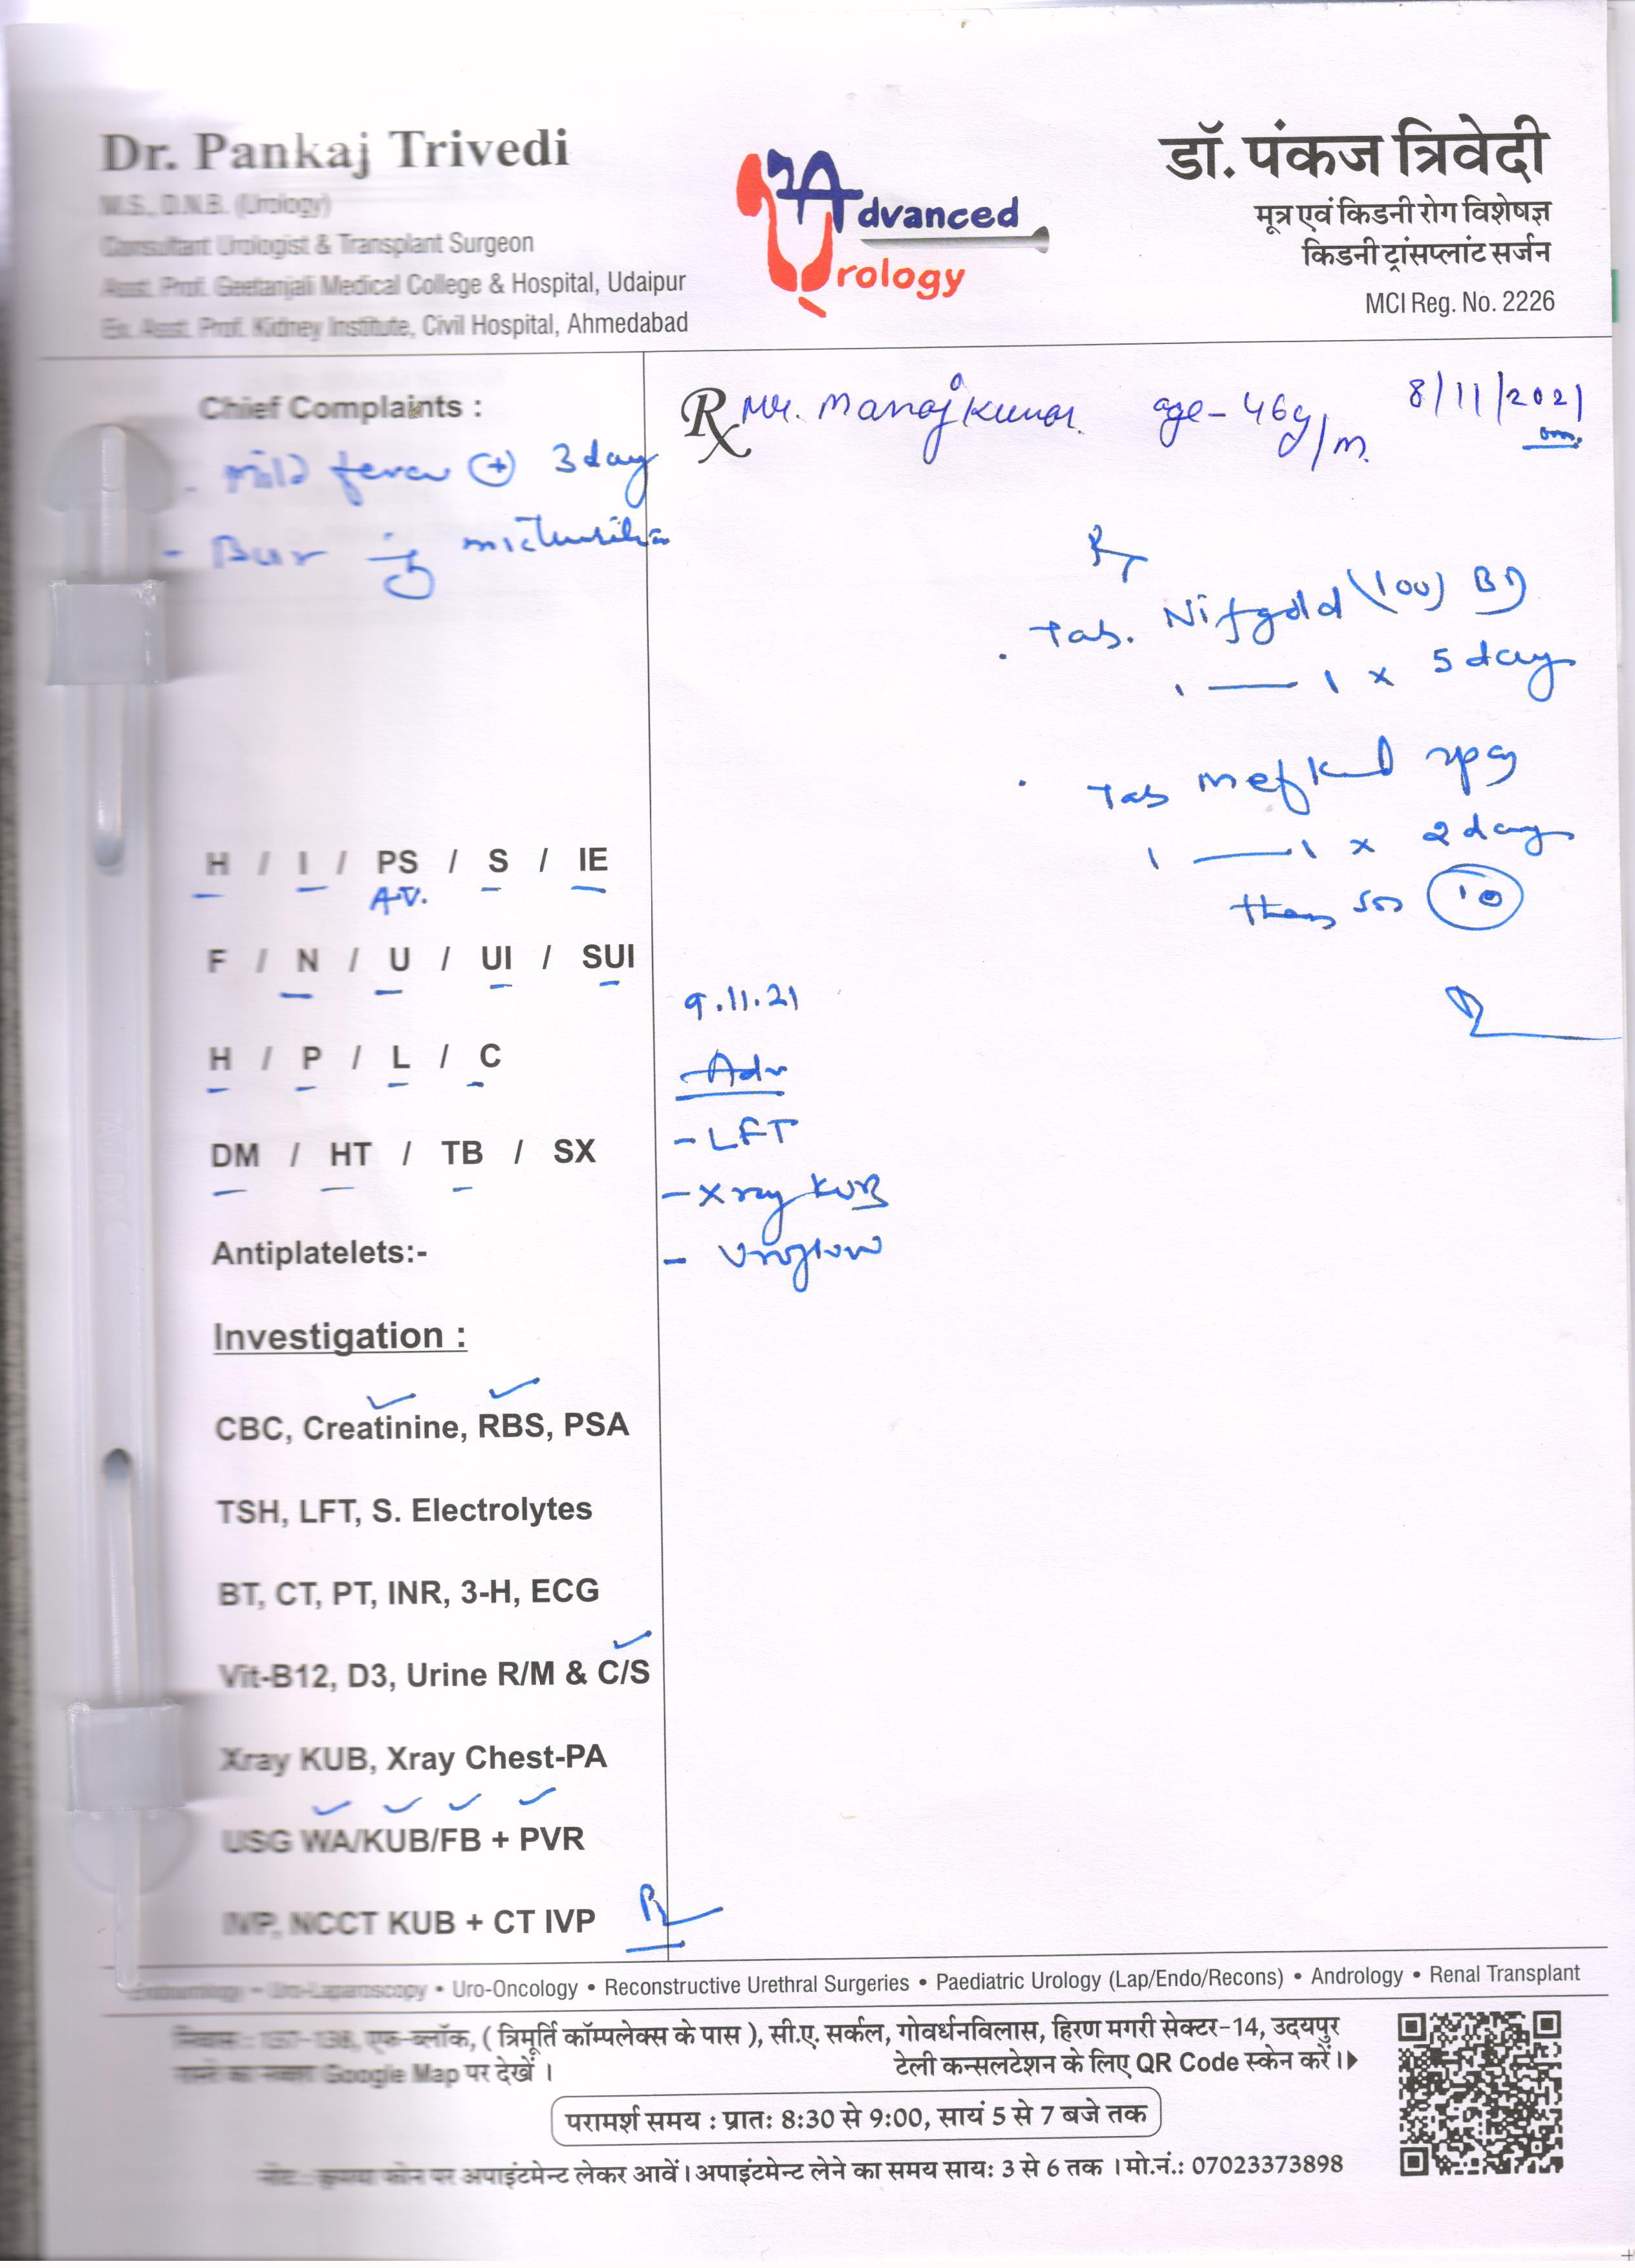 Dr. Pankaj Trivedi
M.S., D.N.B. (Urology)
Consultant Urologist & Transplant Surgeon
Asst. Prof. Geetanjali Medical College & Hospital, Udaipur
Ex. Asst. Prof. Kidney Institute, Civil Hospital, Ahmedabad
Advanced
Urology
डॉ. पंकज त्रिवेदी
मूत्र एवं किडनी रोग विशेषज्ञ
किडनी ट्रांसप्लांट सर्जन
MCI Reg. No. 2226
Chief Complaints :
- Mild fever (+) 3 day
- Bur ing micturition
H / I / PS / S / IE
A.V.
F / N / U / UI / SUI
H / P / L / C
DM / HT / TB / SX
Antiplatelets:-
Investigation :
CBC, Creatinine, RBS, PSA
TSH, LFT, S. Electrolytes
BT, CT, PT, INR, 3-H, ECG
Vit-B12, D3, Urine R/M & C/S
Xray KUB, Xray Chest-PA
USG WA/KUB/FB + PVR
IVP, NCCT KUB + CT IVP
Rx Mr. Manoj Kumar. age - 46y/m. 8/11/2021
Rx
. Tab. Nifgold (100) BD
1 — 1 x 5 day
. Tab Mefkind spas
1 — 1 x 2 day
then SOS 10
9.11.21
Adv
- LFT
- X ray KUB
- Uroflow
• Uro-Oncology • Reconstructive Urethral Surgeries • Paediatric Urology (Lap/Endo/Recons) • Andrology • Renal Transplant
निवास : 137-138, एफ-ब्लॉक, ( त्रिमूर्ति कॉम्पलेक्स के पास ), सी.ए. सर्कल, गोवर्धनविलास, हिरण मगरी सेक्टर-14, उदयपुर
रास्ते का नक्शा Google Map पर देखें । टेली कन्सलटेशन के लिए QR Code स्केन करें।
परामर्श समय : प्रातः 8:30 से 9:00, सायं 5 से 7 बजे तक
नोट : कृपया फोन पर अपाइंटमेन्ट लेकर आवें। अपाइंटमेन्ट लेने का समय सायः 3 से 6 तक । मो.नं.: 07023373898